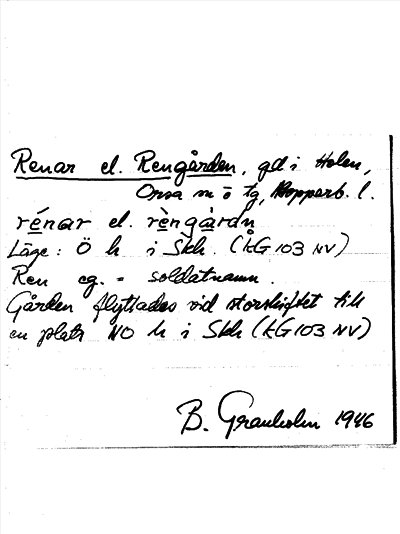 Renar el. Rengården, gd i Holen,
Orsa sn ö tg, Kopparb. l.
rénar el. rèngàrdn
Läge: Ö h i Skh. (kG 103 NV)
Ren eg. = soldatnamn.
Gården flyttades vid storskiftet till
en plats NO h i Skh (kG 103 NV)
B. Granholm 1946